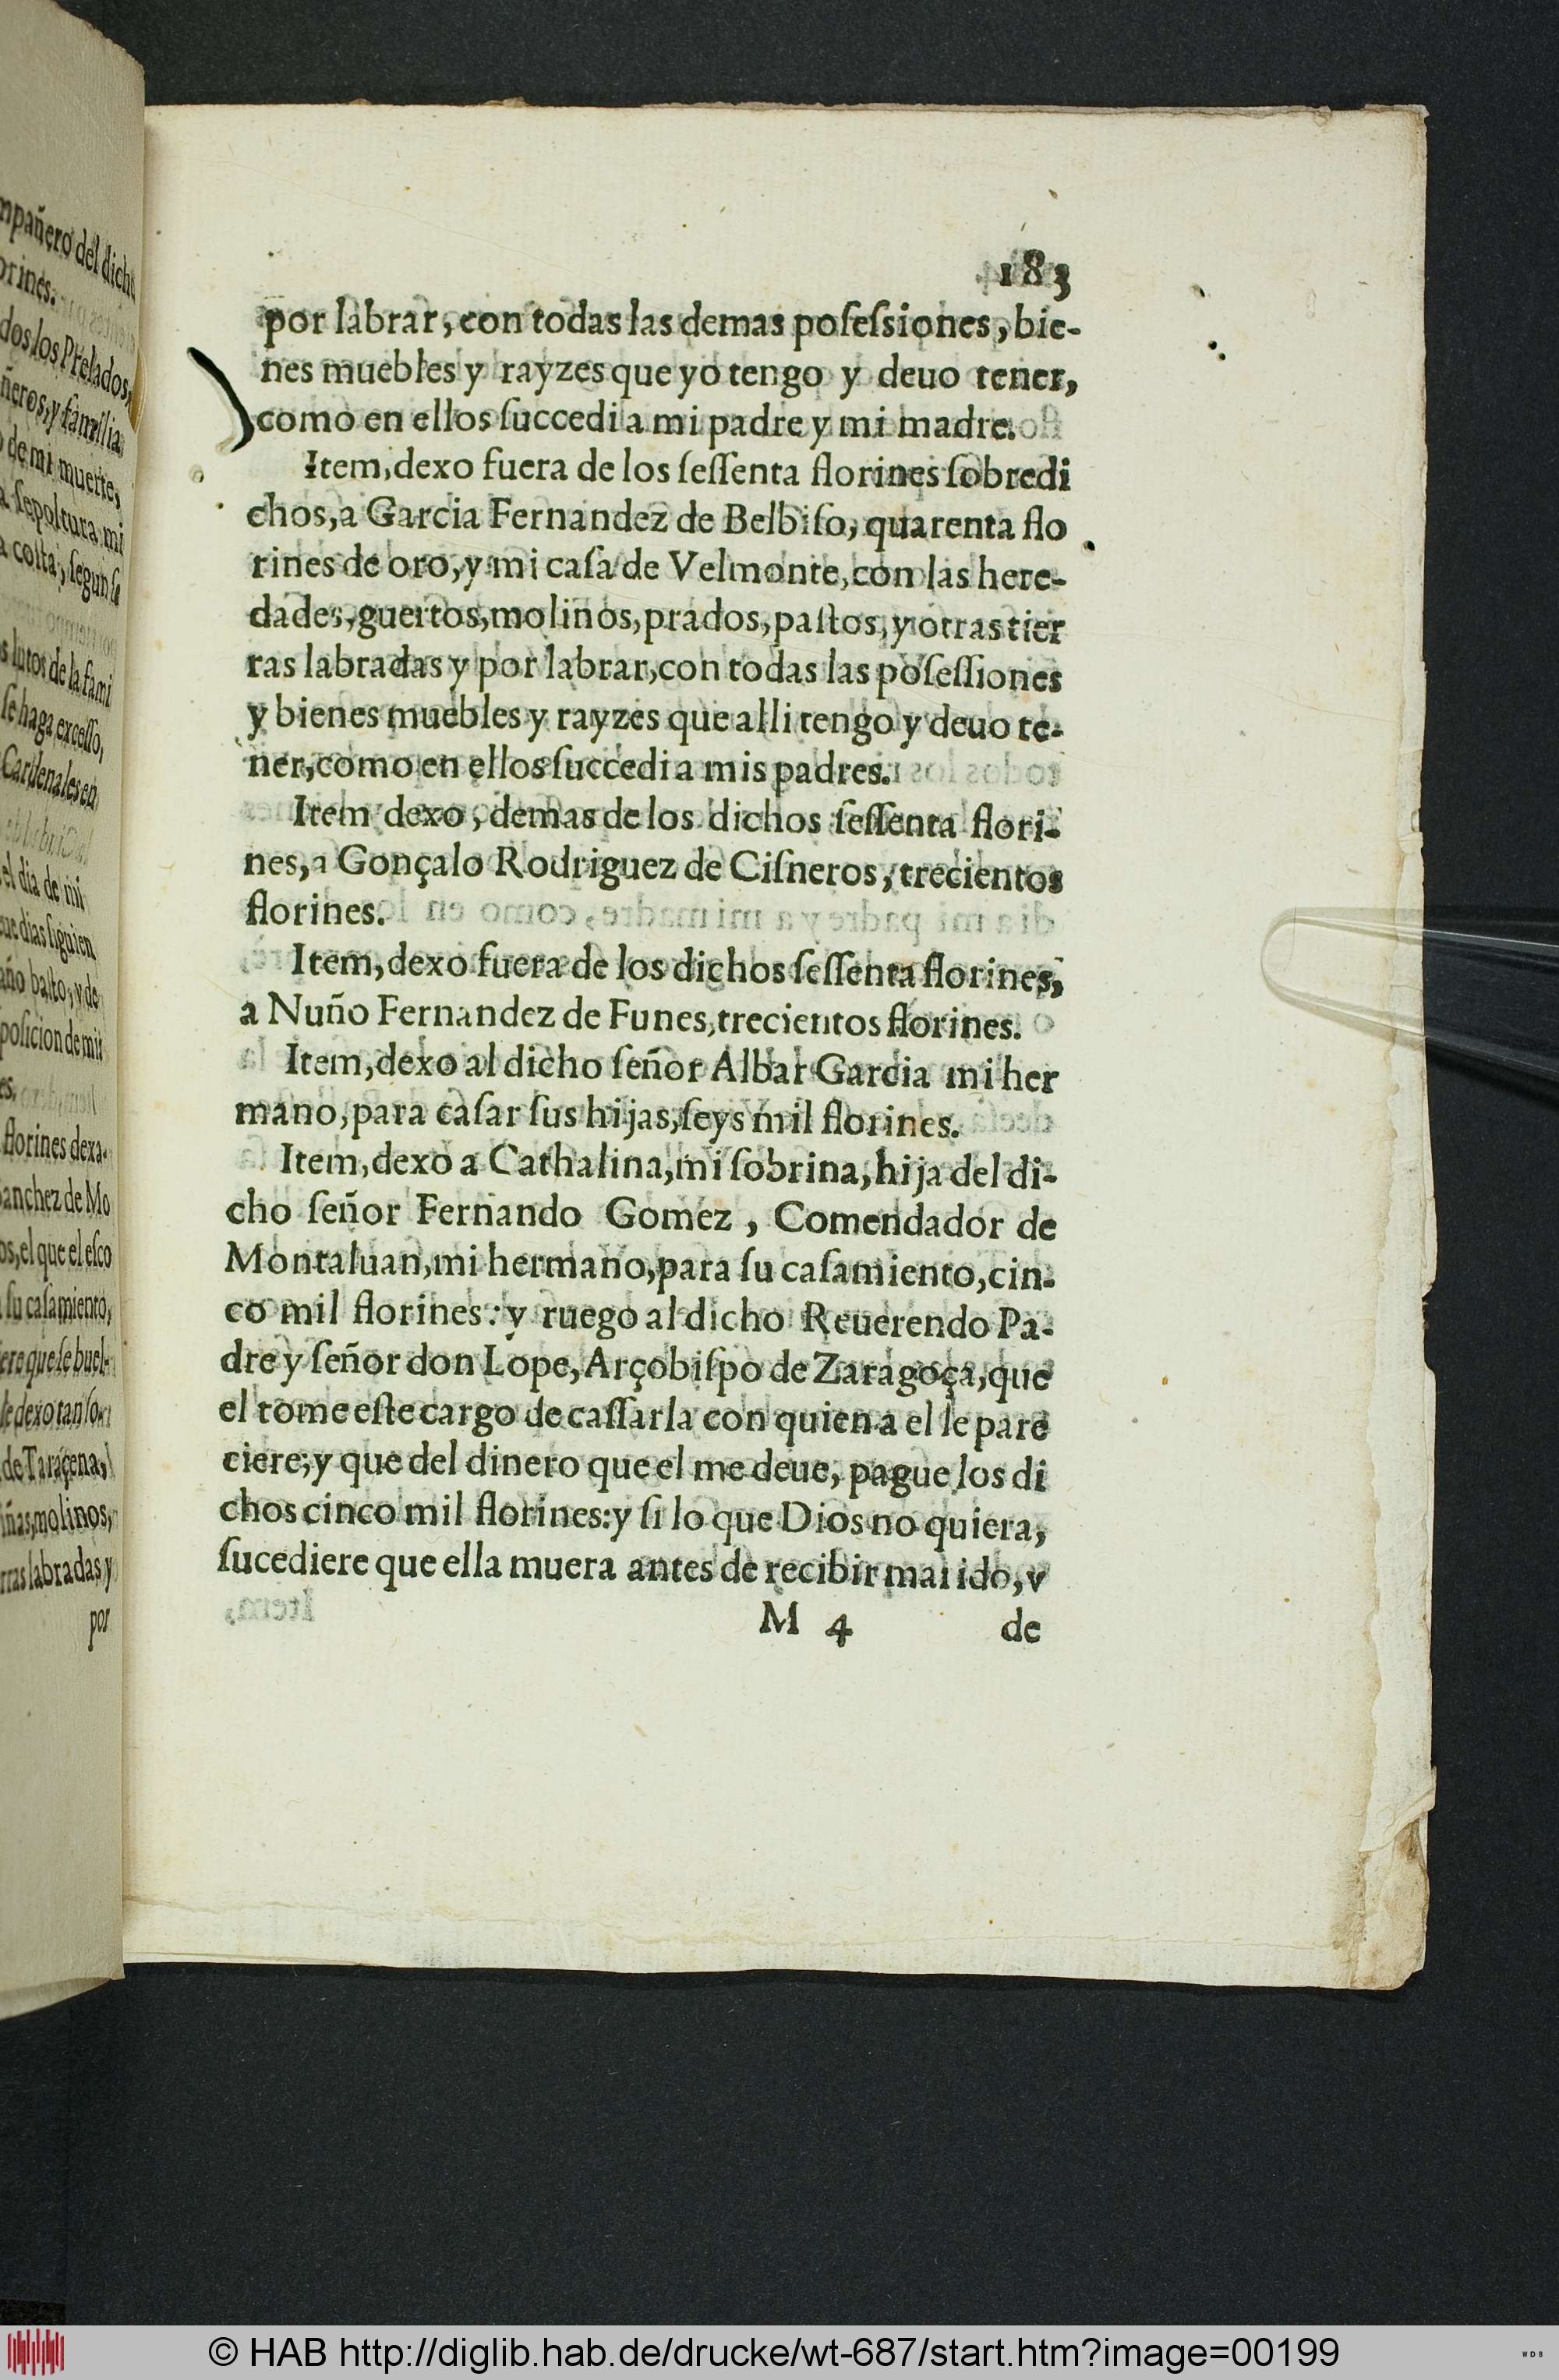 mpañero del dicho
orines.
dos los Prelados,
ñeros, y familia
de mi muerte,
a ſepoltura mi
a coſta, ſegun ſe
s lutos de la fami
ſe haga exceſſo,
Cardenales en
el dia de mi
ue dias ſiguien
año baſto, y de
poſicion de mis
es.
florines dexa-
anchez de Mo
os, el que el eſco
ſu caſamiento,
ero que ſe buel-
le dexo tan ſo-
de Taraçena,
iñas, molinos,
rras labradas y
por
183
por labrar, con todas las demas poſeſsiones, bie-
nes muebles y rayzes que yo tengo y deuo tener,
como en ellos ſuccedi a mi padre y mi madre.
Item, dexo fuera de los ſeſſenta florines ſobredi
chos, a Garcia Fernandez de Belbiſo, quarenta flo
rines de oro, y mi caſa de Velmonte, con las here-
dades, guertos, molinos, prados, paſtos, y otras tier
ras labradas y por labrar, con todas las poſeſſiones
y bienes muebles y rayzes que alli tengo y deuo te-
ner, como en ellos ſuccedi a mis padres.
Item dexo, demas de los dichos ſeſſenta flori-
nes, a Gonçalo Rodriguez de Ciſneros, trecientos
florines.
Item, dexo fuera de los dichos ſeſſenta florines,
a Nuño Fernandez de Funes, trecientos florines.
Item, dexo al dicho ſeñor Albar Garcia mi her
mano, para caſar ſus hijas, ſeys mil florines.
Item, dexo a Cathalina, mi ſobrina, hija del di-
cho ſeñor Fernando Gomez, Comendador de
Montaluan, mi hermano, para ſu caſamiento, cin-
co mil florines: y ruego al dicho Reuerendo Pa-
dre y ſeñor don Lope, Arçobiſpo de Zaragoça, que
el tome eſte cargo de caſſarla con quien a el le pare
ciere; y que del dinero que el me deue, pague los di
chos cinco mil florines: y ſi lo que Dios no quiera,
ſucediere que ella muera antes de recibir marido, y
M 4 de
© HAB http://diglib.hab.de/drucke/wt-687/start.htm?image=00199
WDB